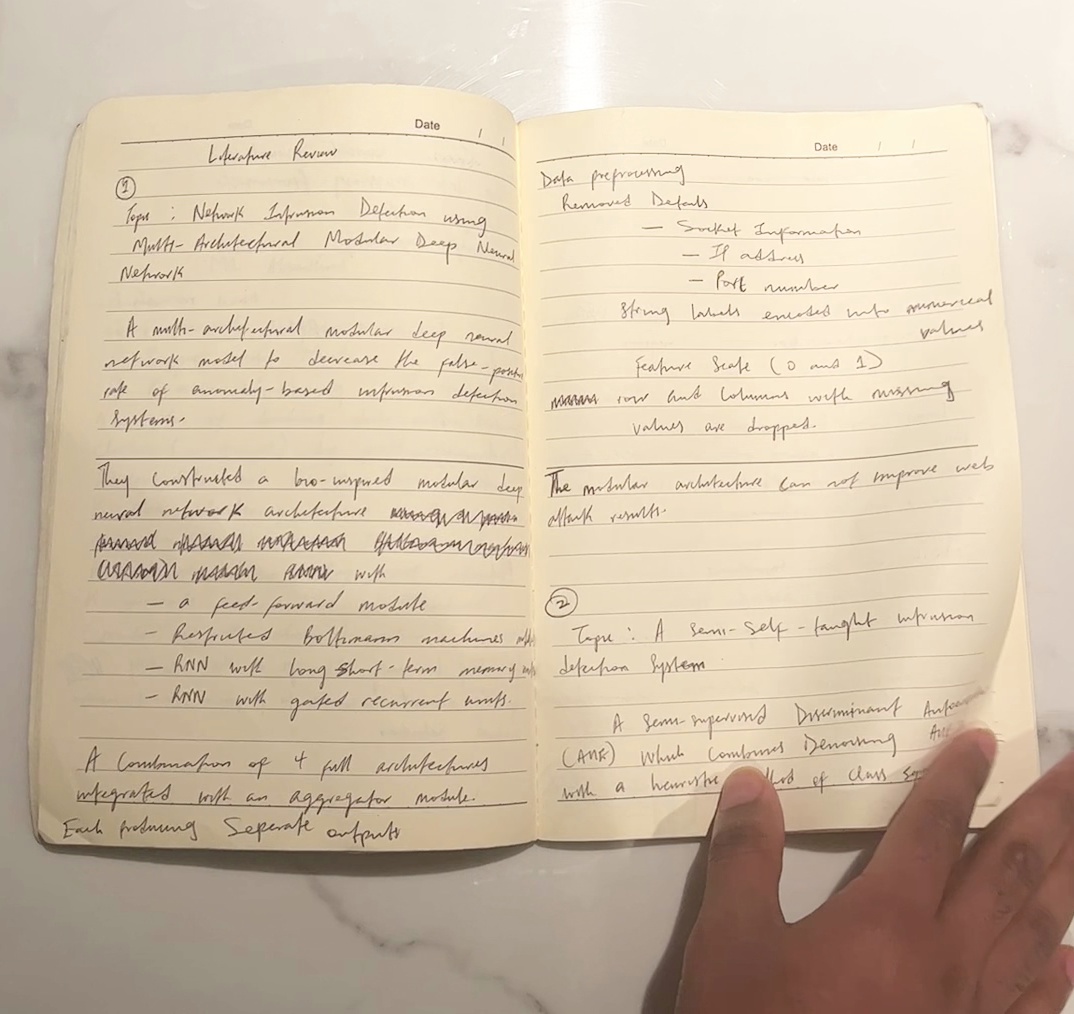 Date / /
Literature Review
1
Topic : Network Intrusion Detection using
Multi-Architectural Modular Deep Neural
Network
A multi-architectural modular deep neural
network model to decrease the false-positive
rate of anomaly-based intrusion detection
systems.
They constructed a bio-inspired modular deep
neural network architecture
with
- a feed-forward module
- Restricted Boltzmann machines
- RNN with long short-term memory
- RNN with gated recurrent units.
A Combination of 4 full architectures
integrated with an aggregator module.
Each producing Seperate outputs
Date / /
Data preprocessing
Removed Details
- Socket Information
- IP address
- Port number
String labels encoded into numerical
values
Feature Scale (0 and 1)
row and Columns with missing
values are dropped.
The modular architecture can not improve web
attack results.
2
Topic : A Semi-Self-taught intrusion
detection System
A Semi-supervised Discriminant
which Combines Denoising
with a heuristic of class